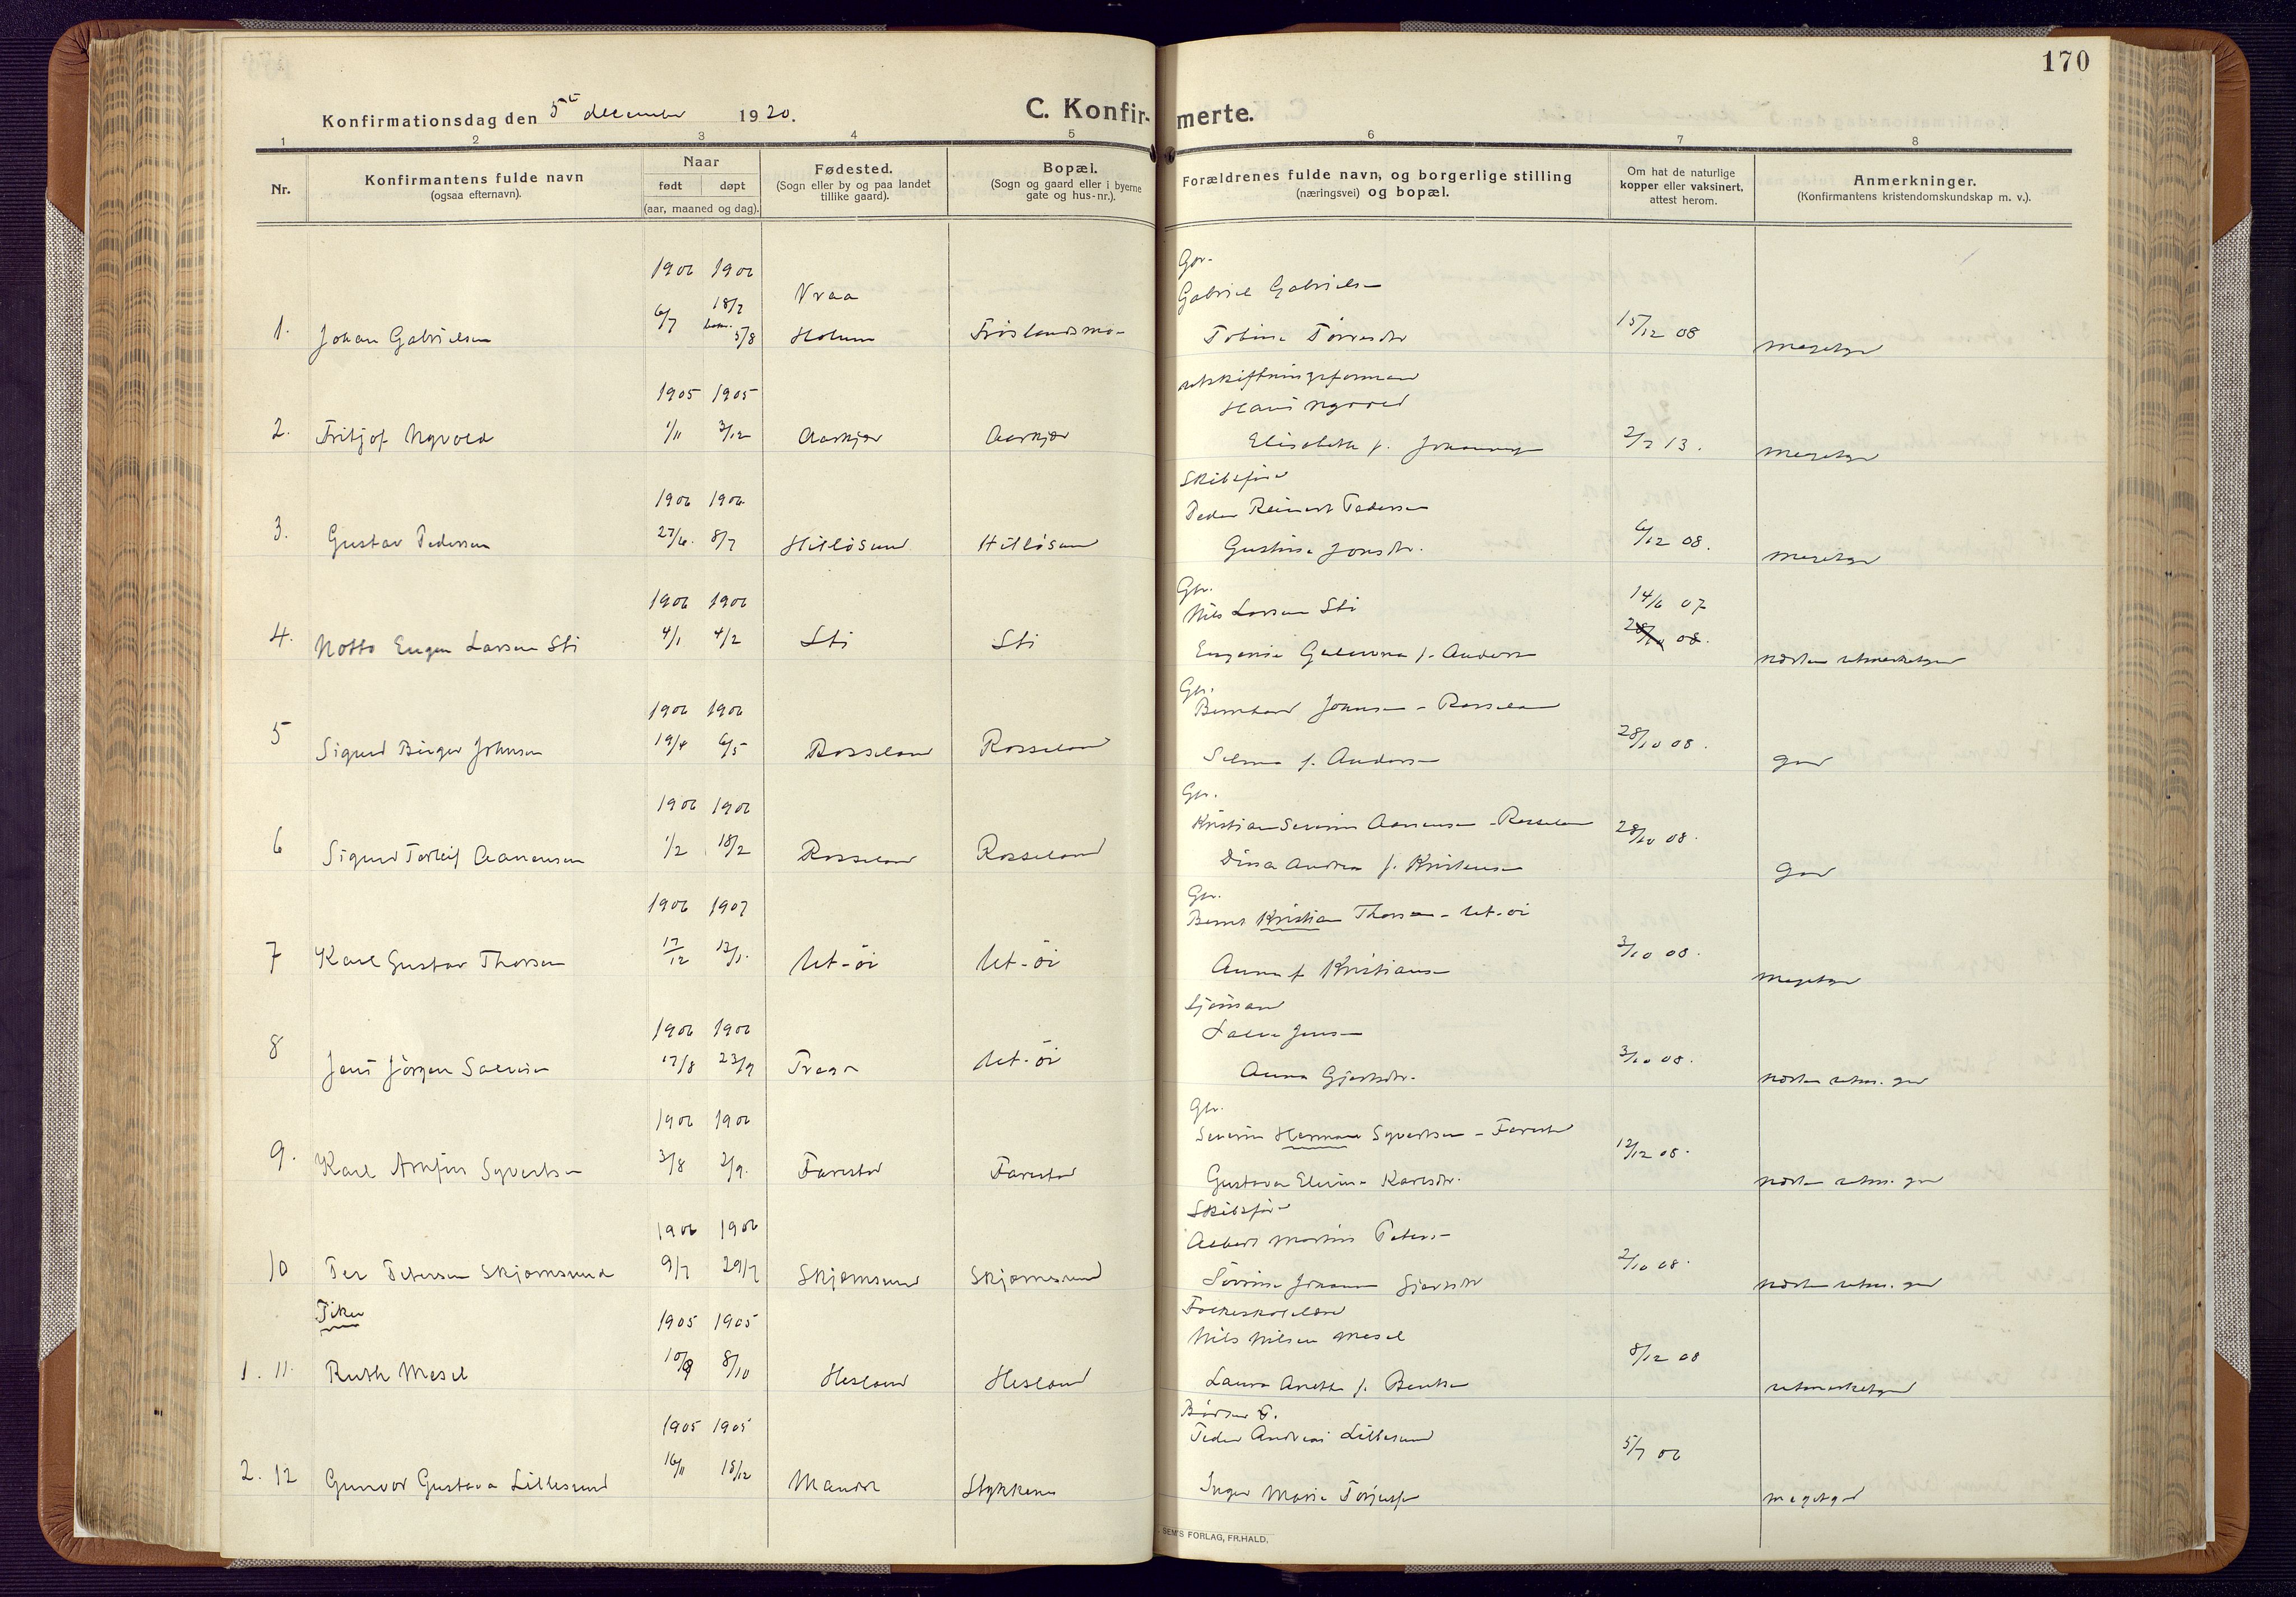 170
Konfirmationsdag den 5te december 1920.
C. Konfir-
merte.
1 2 3 4 5 6 7 8
Nr.
Konfirmantens fulde navn
(ogsaa efternavn).
Naar
født døpt
(aar, maaned og dag).
Fødested.
(Sogn eller by og paa landet
tillike gaard).
Bopæl.
(Sogn og gaard eller i byerne
gate og hus-nr.).
Forældrenes fulde navn, og borgerlige stilling
(næringsvei) og bopæl.
Om hat de naturlige
kopper eller vaksinert,
attest herom.
Anmerkninger.
(Konfirmantens kristendomskundskap m. v.).
1906 1906
Gbr.
Gabriel Gabrielsen
6/7 18/7 Vraa
1. Johan Gabrielsen 5/8 Holum Frøslandsmo Tobine Tørresdtr 15/12 08 megetgod
1905 1905
utskiftningsformand
Hans Nyvold
2. Fritjof Nyvold 1/11 3/12 Aaskjær Aaskjær Elisabeth f. 2/7 13. megetgod
1906 1906
Skibsfører
Peder Reinert Pedersen
3. Gustav Pedersen 27/6. 8/7 Hilløsund Hilløsund Gustine Jonsdtr. 6/12 08. megetgod
1906 1906
Gbr.
Nils Larsen Sti 14/6 07
4. Notto Eugen Larsen Sti 4/1 4/2 Sti Sti Eugenie f. Andersen 28/10 08. næsten utmerketgod
1906 1906
Gbr.
Bernhard Johnsen - Rosseland
5 Sigurd Birger Johnsen 19/4 6/5 Rosseland Rosseland Selma f. Andersen 28/10 08. god
1906 1906
Gbr.
Kristian Severin Aanensen - Rosseland
6 Sigurd Torleif Aanensen 1/2 18/2 Rosseland Rosseland Dina Andrea f. Kristensen 28/10 08. god
1906 1907
Gbr.
Bernt Kristian Thorsen - Ut-öi
7 Karl Gustav Thorsen 17/12 13/1. Ut-öi Ut-öi Anna f Kristiansen 3/10 08. megetgod
1906 1906
Sjømand
Salve Jensen
8 Jens Jörgen Salvesen 17/8 23/9 Ut-öi Anna Gjertsdtr. 3/10 08. næsten utm. god
1906 1906
Gbr.
Severin Herman Syvertsen - Farestad
9. Karl Arnfin Syvertsen 3/8 2/9. Farestad Farestad Gustava Elevine Karlsdtr. 12/12 08. næsten utm. god
1906 1906
Skibsfører
Albert Martin Petersen
10 Per Petersen Skjernsund 9/7 29/7 Skjernsund Skjernsund Sørine Johanne Gjertsdtr 2/10 08. næsten utm. god
Piker
1905 1905
Folkeskolelærer
Nils Nilsen Mesel
1. 11. Ruth Mesel 10/9 8/10 Hesland Hesland Laura Anette f. Bentsen 8/12 08 utmerketgod
1905 1905
Peder Andreas Lillesund
2. 12 Gunvor Gustava Lillesund 16/11 18/12 Mandal Stykkene Inger Marie Torjusdtr 5/7 06 megetgod
SEM'S FORLAG, FR.HALD.